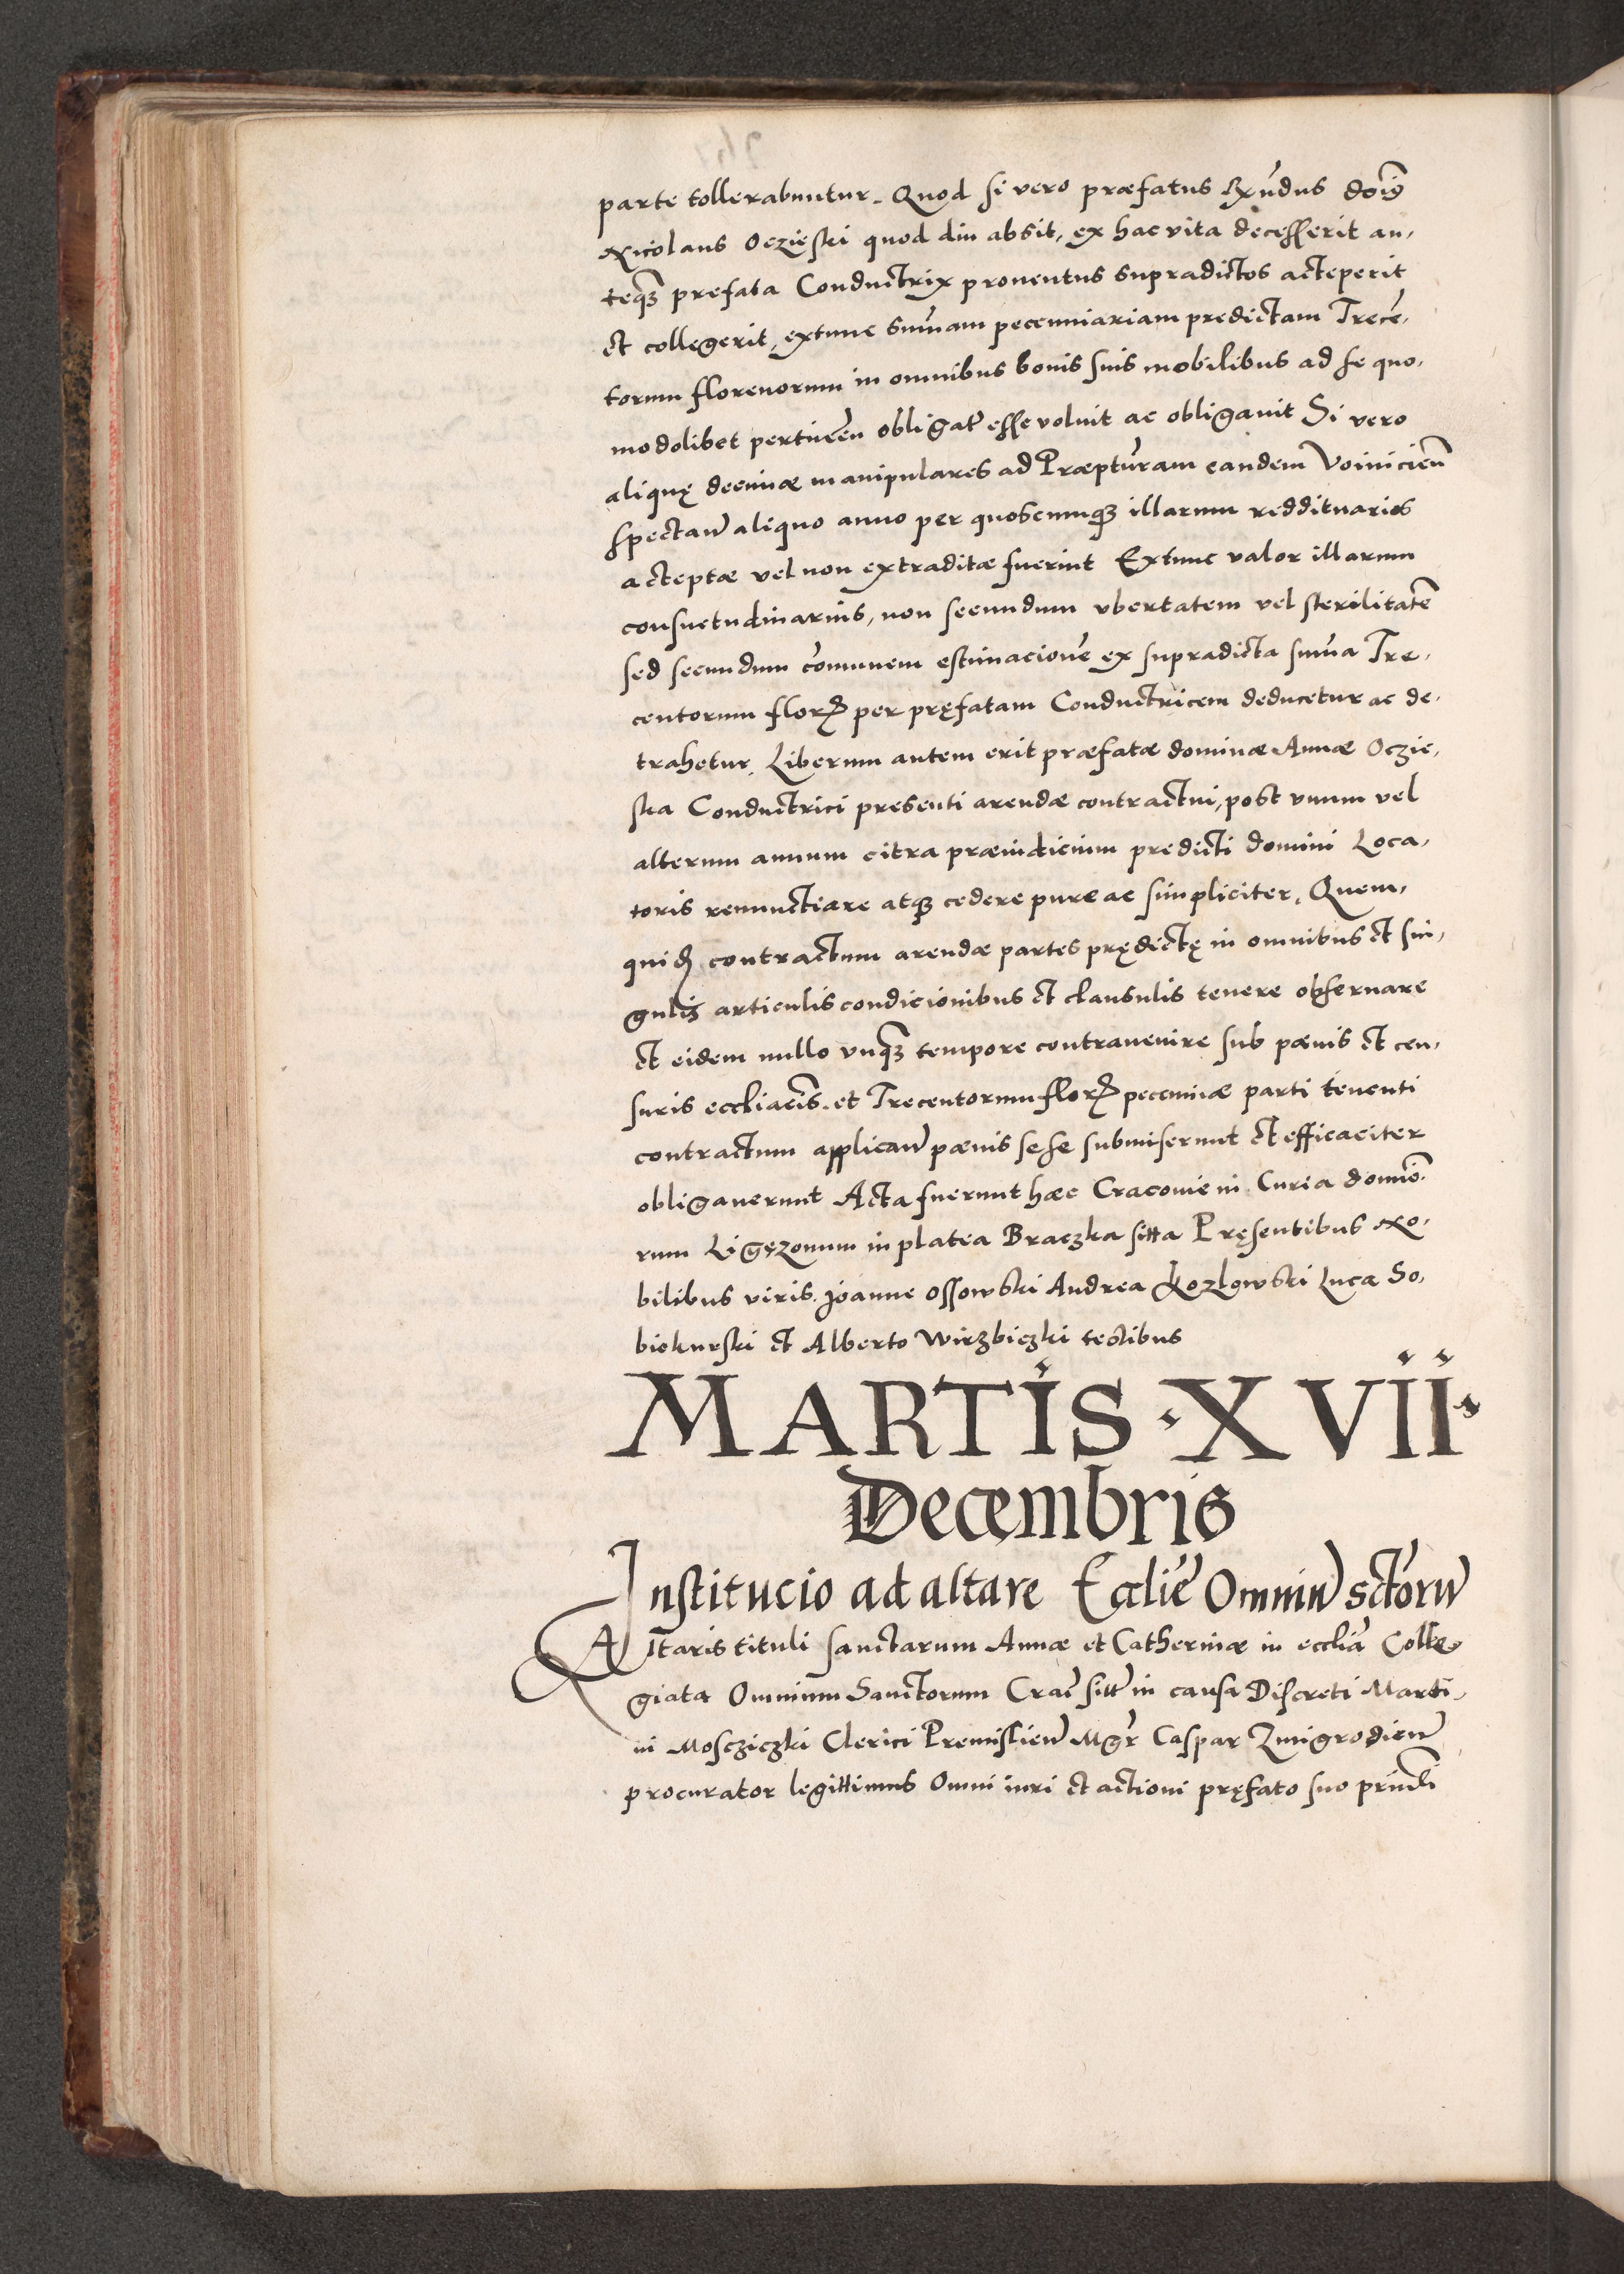 parte tollerabuntur. Quod si vero præfatus Rṽndus dõis
Nicolaus Oczieski quod diu absit, ex hac vita decesserit an,
teqȝ prefata Conductrix prouentus supradictos acteperit
et collegerit, extunc sum̃am pecenniariam predictam Trecẽ,
torum florenorum in omnibus bonis suis mobilibus ad se quo,
modolibet pertineñ obligat̃ esse voluit ac obligauit Si vero
aliquę decimæ manipulares ad Præpturam eandem Voinicieñ
spectañ aliquo anno per quoscunqȝ illarum reddituarios
acteptæ vel non extraditæ fuerint Extunc valor illarum
consuetudinarius, non secundum vbertatem vel sterilitatẽ
sed secundum cõmunem estimacionẽ ex supradicta sum̃a Tre,
centorum florꝭ per pręfatam Conductricem deducetur ac de,
trahetur. Liberum autem erit præfatæ dominæ Annæ Oczie,
ska Conductrici presenti arendæ contractui, post vnum vel
alterum annum citra præiudicium predicti domini Loca,
toris renunctiare atqȝ cedere pure ac simpliciter. Quem,
quidꝭ contractum arendæ partes prędictę in omnibus et sin,
gulis articulis condicionibus et clausulis tenere obseruare
et eidem nullo vnqȝ tempore contrauenire sub pœnis et cen,
suris eccliacis̃. et Trecentorum florꝭ pecuniæ parti tenenti
contractum applicañ pœnis sese submiserunt et efficaciter
obligauerunt Acta fuerunt hæc Cracouie in Curia domino,
rum Ligęzonum in platea Braczka sitta Pręsentibus No,
bilibus viris. Joanne Ossowski Andrea Kozlowski Luca So,
biekurski et Alberto Wirzbiczki testibus
MARTIS · XVII·
Decembris
Institucio ad altare Eccliẽ Omniũ sctõrũ
Altaris tituli sanctarum Annæ et Catherinæ in ecclia Colle,
giata Omnium Sanctorum Crac̃ sitt̃ in causa Discreti Marti,
ni Mosczicki Clerici Premislieñ Mgr̃ Caspar Zmigrodieñ
procurator legittimus Omni iuri et actioni pręfato suo prinćli